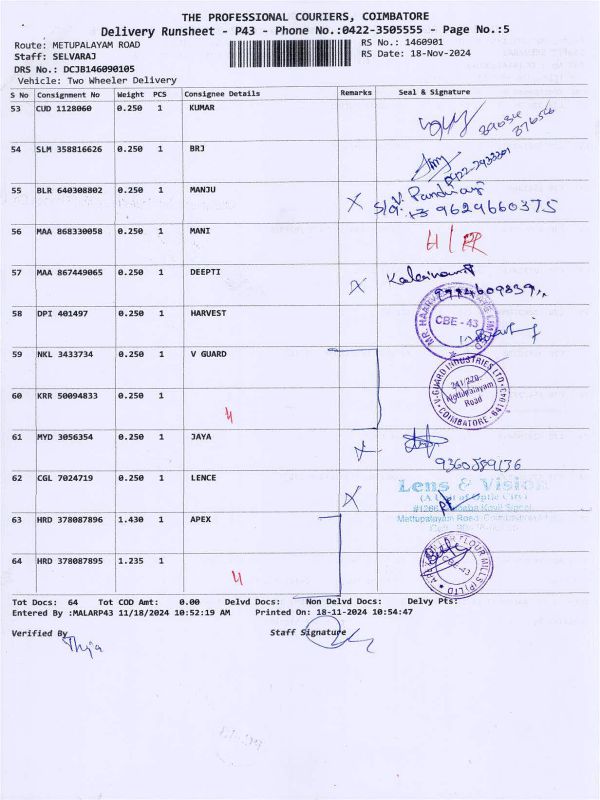 THE PROFESSIONAL COURIERS, COIMBATORE
Delivery Runsheet - P43 - Phone No.:0422-3505555 - Page No.:5
Route: METUPALAYAM ROAD
RS No.: 1460901
Staff: SELVARAJ
RS Date: 18-Nov-2024
DRS No.: DCJB146090105
Vehicle: Two Wheeler Delivery
S No Consignment No Weight PCS Consignee Details Remarks Seal & Signature
53 CUD 1128060 0.250 1 KUMAR
54 SLM 358816626 0.250 1 BRJ
55 BLR 640308802 0.250 1 MANJU
9629660375
56 MAA 868330058 0.250 1 MANI
57 MAA 867449065 0.250 1 DEEPTI
58 DPI 401497 0.250 1 HARVEST
CBE - 43
59 NKL 3433734 0.250 1 V GUARD
V-GUARD INDUSTRIES LTD
Mettupalayam
Road
COIMBATORE
60 KRR 50094833 0.250 1
61 MYD 3056354 0.250 1 JAYA
62 CGL 7024719 0.250 1 LENCE
Lens & Vision
Mettupalayam Road
63 HRD 378087896 1.430 1 APEX
FLOUR MILLS (P) LTD
64 HRD 378087895 1.235 1
Tot Docs: 64 Tot COD Amt: 0.00 Delvd Docs: Non Delvd Docs: Delvy Pts:
Entered By :MALARP43 11/18/2024 10:52:19 AM Printed On: 18-11-2024 10:54:47
Verified By
Staff Signature